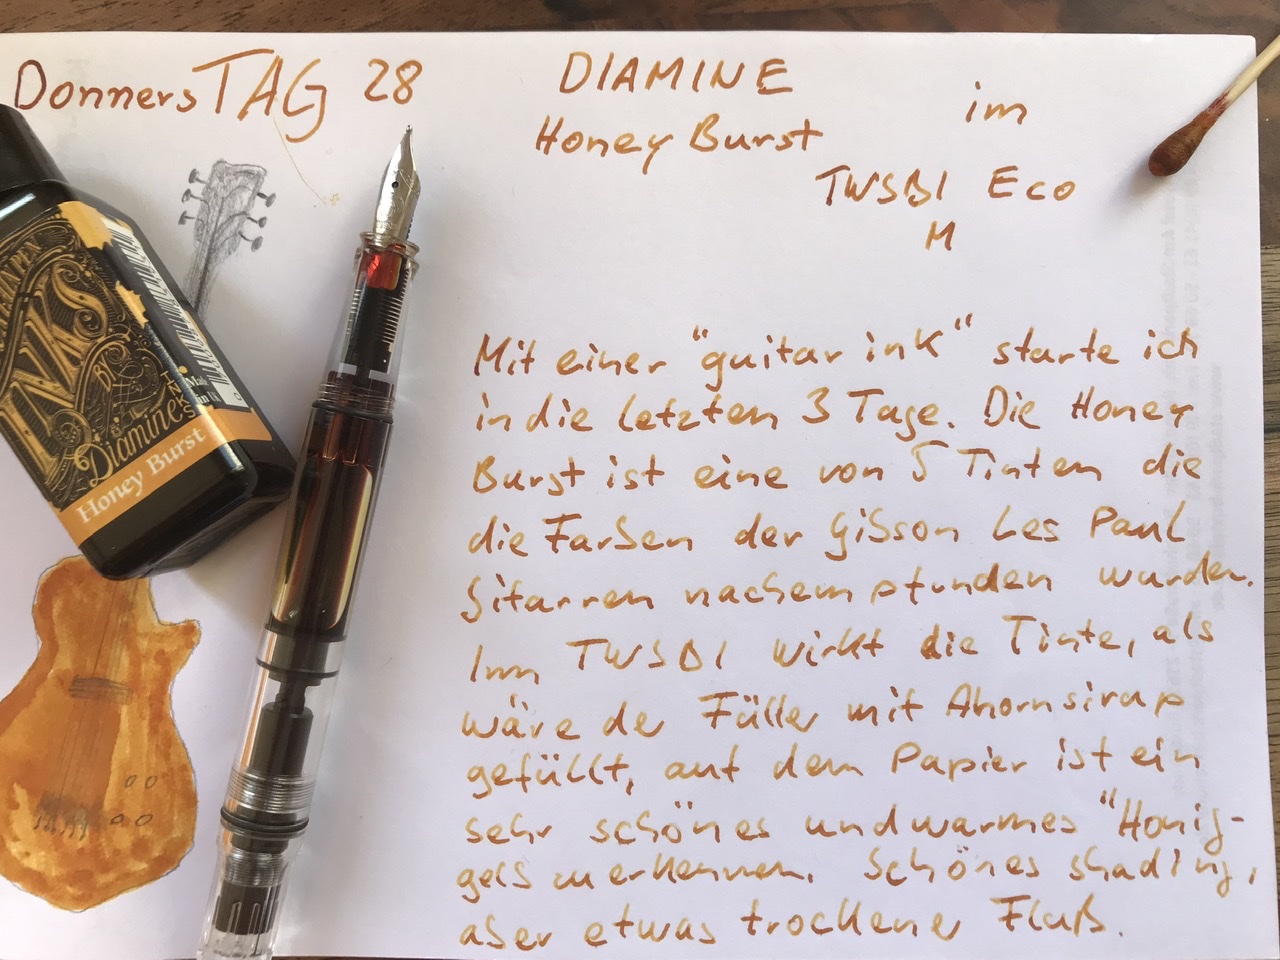 DonnersTAG 28
DIAMINE
Honey Burst
im
TWSBI Eco
M
INKS
Diamine
INKS
Honey Burst
Mit einer "guitar ink" starte ich
in die letzten 3 Tage. Die Honey
Burst ist eine von 5 Tinten die
die Farben der Gibson Les Paul
Gitarren nachempfunden wurden.
Im TWSBI wirkt die Tinte, als
wäre der Füller mit Ahornsirap
gefüllt, auf dem Papier ist ein
sehr schönes und warmes "Honig-
gelb zu erkennen. Schönes shading,
aber etwas trockener Fluß.